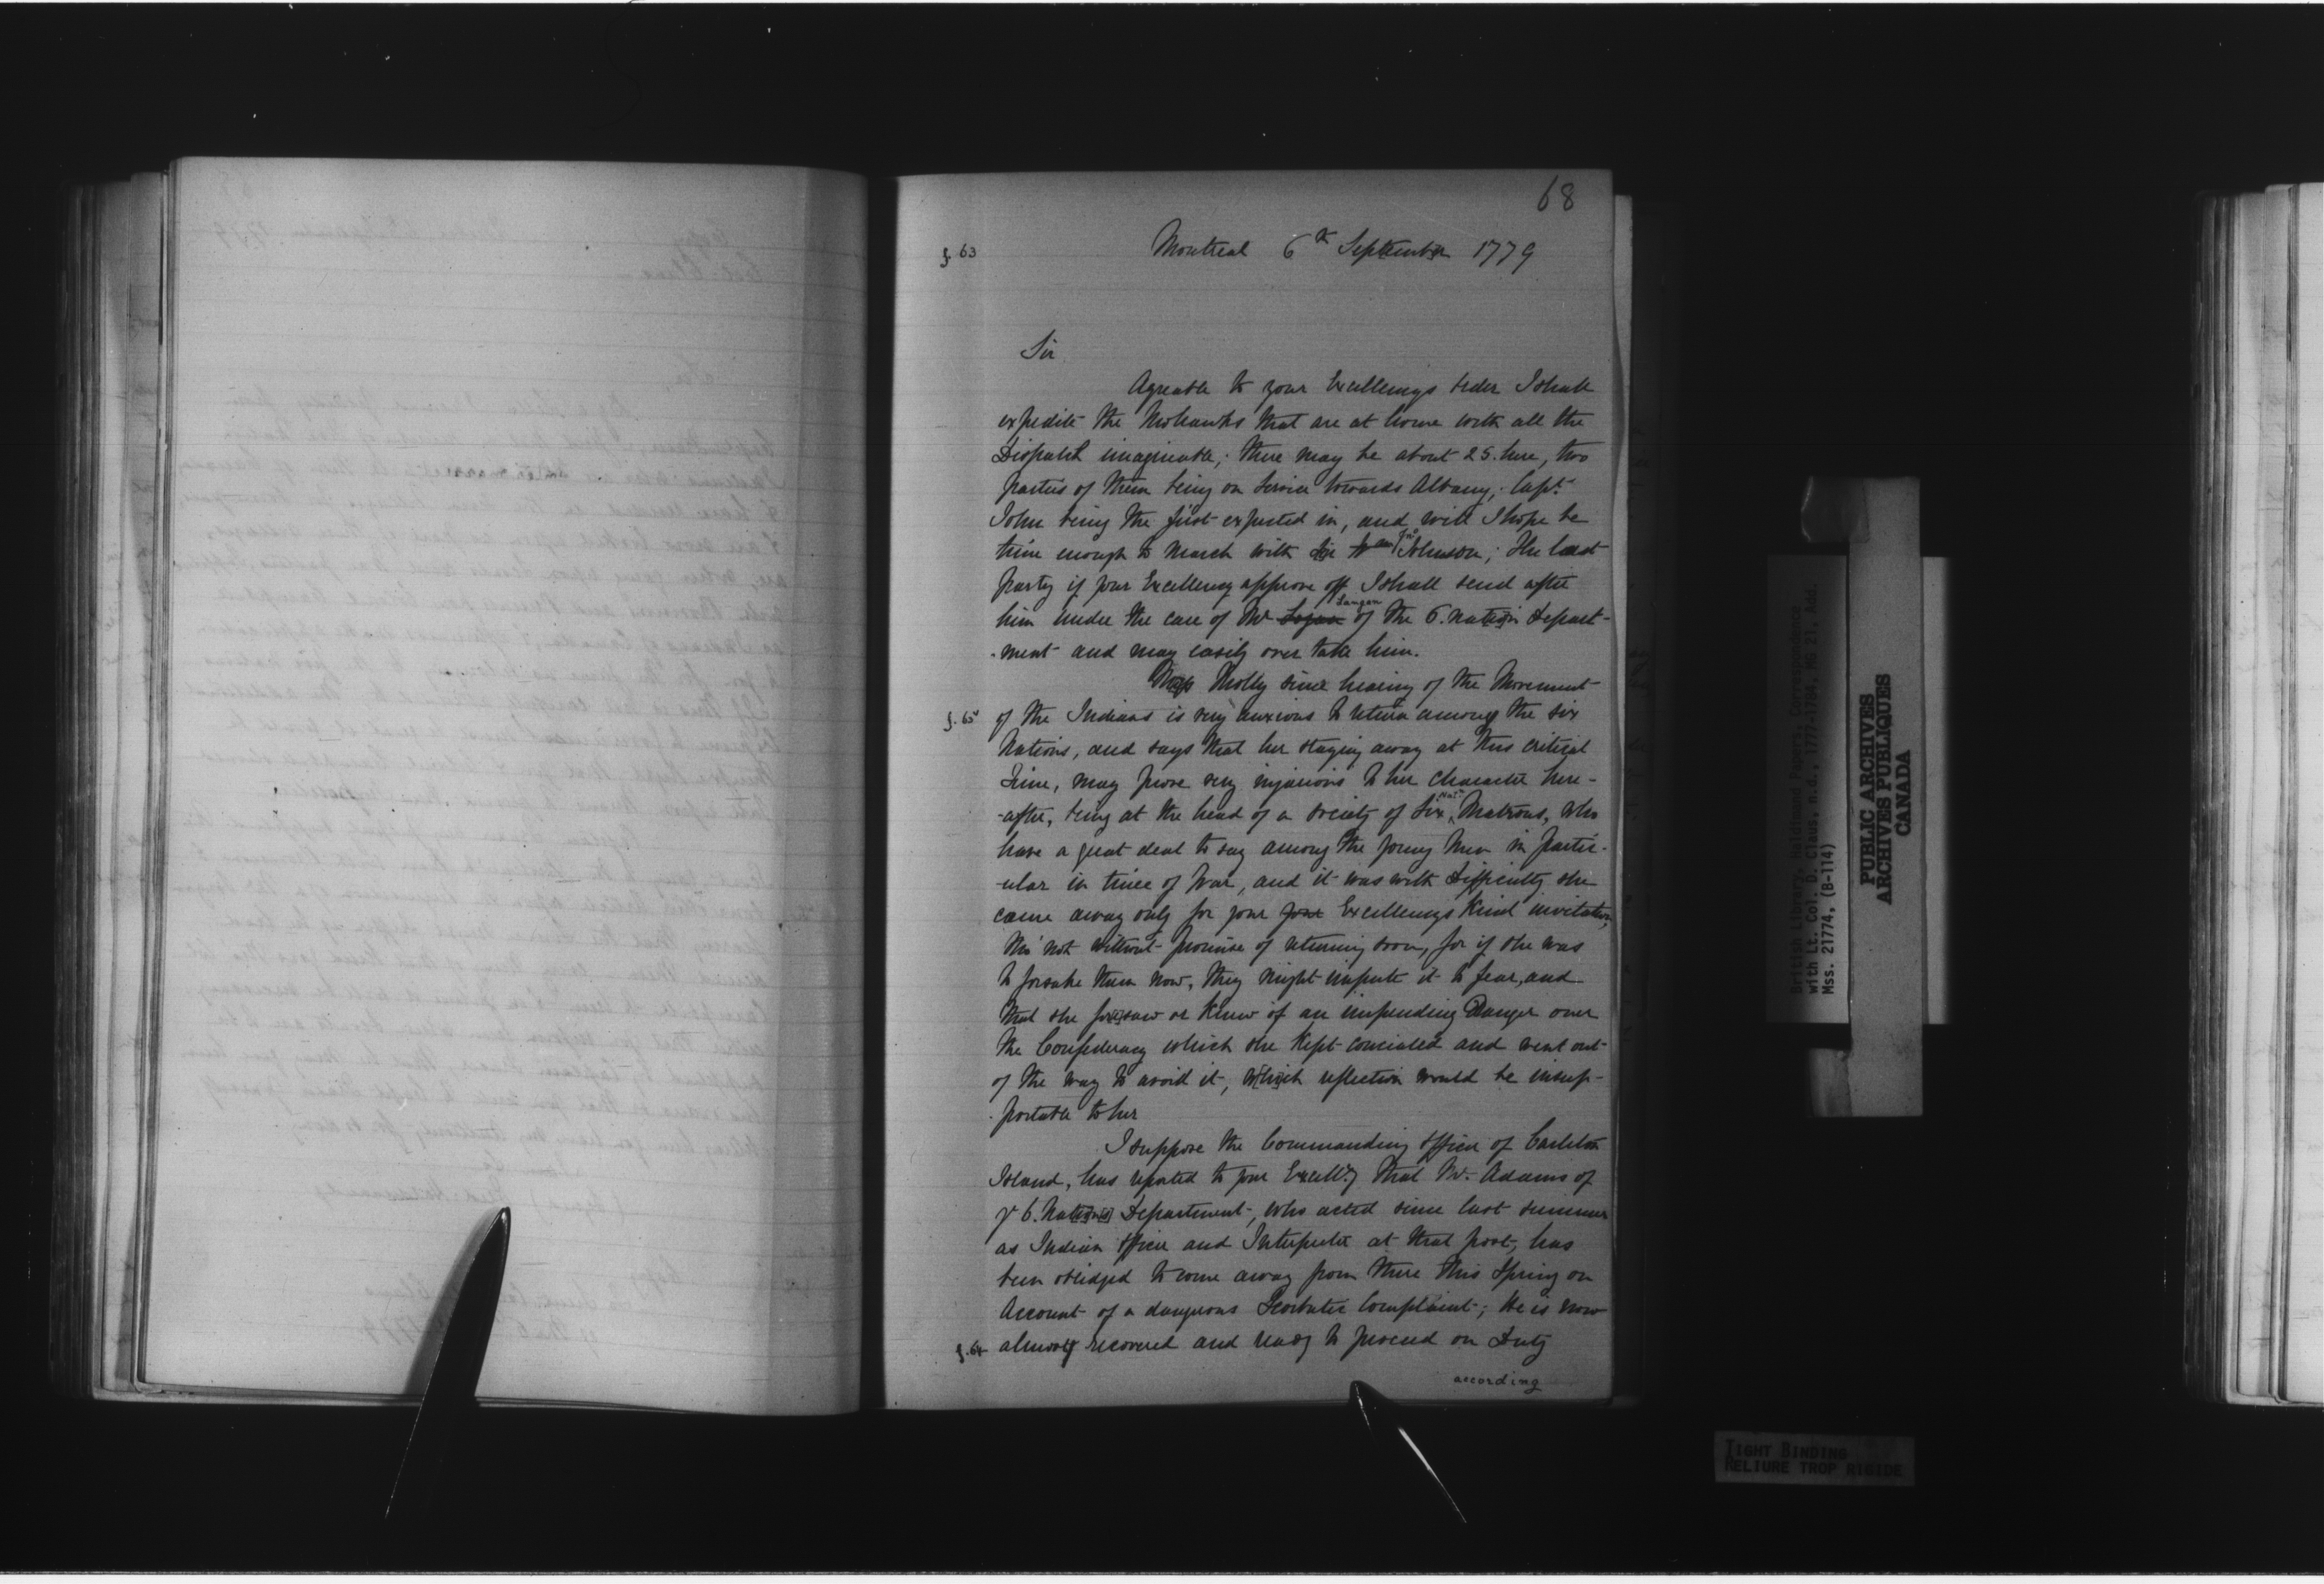 68
f. 63
Montreal 6th September 1779
Sir
Agreable to your Excellencys order I shall
expedite the Mohawks that are at home with all the
Dispatch imaginable; there may be about 25. here, two
parties of them being on Service towards Albany; Capt.
John being the first expected in, and will I hope be
time enough to March with Sir Jno Johnson; the last
party if your Excellency approve off I shall send after
him under the care of Mr Logan Langan of the 6. Nation Depart-
-ment and may easily over take him.
Miss Molly since hearing of the Movement
f. 63v of the Indians is very anxious to return among the six
Nations, and says that her staying away at this critical
Time, may prove very injurious to her character here-
-after, being at the head of a society of Six Natn Matrons, who
have a great deal to say among the young Men in partic-
-ular in time of War, and it was with Difficulty she
came away only for your your Excellencys Kind invitation,
tho' not without promise of returning soon, for if she was
to forsake them now, they might impute it to fear, and
that she for[e]saw or knew of an impending Danger over
the Confederacy which she kept concealed and went out
of the way to avoid it, which reflection would be insup-
-portable to her
I suppose the Commanding Officer of Carleton
Island, has reported to your Excell'y that Mr. Adams of
ye 6. Nation[s] Department, who acted since last summer
as Indian Officer and Interpreter at that post, has
been obliged to come away from there this Spring on
Account of a dangerous Scorbutic Complaint; He is now
f. 64 almost recovered and ready to proceed on Duty
according
British Library, Haldimand Papers, Correspondence
with Lt. Col. D. Claus, n.d., 1777-1784, MG 21, Add.
Mss. 21774, (B-114)
PUBLIC ARCHIVES
ARCHIVES PUBLIQUES
CANADA
TIGHT BINDING
RELIURE TROP RIGIDE